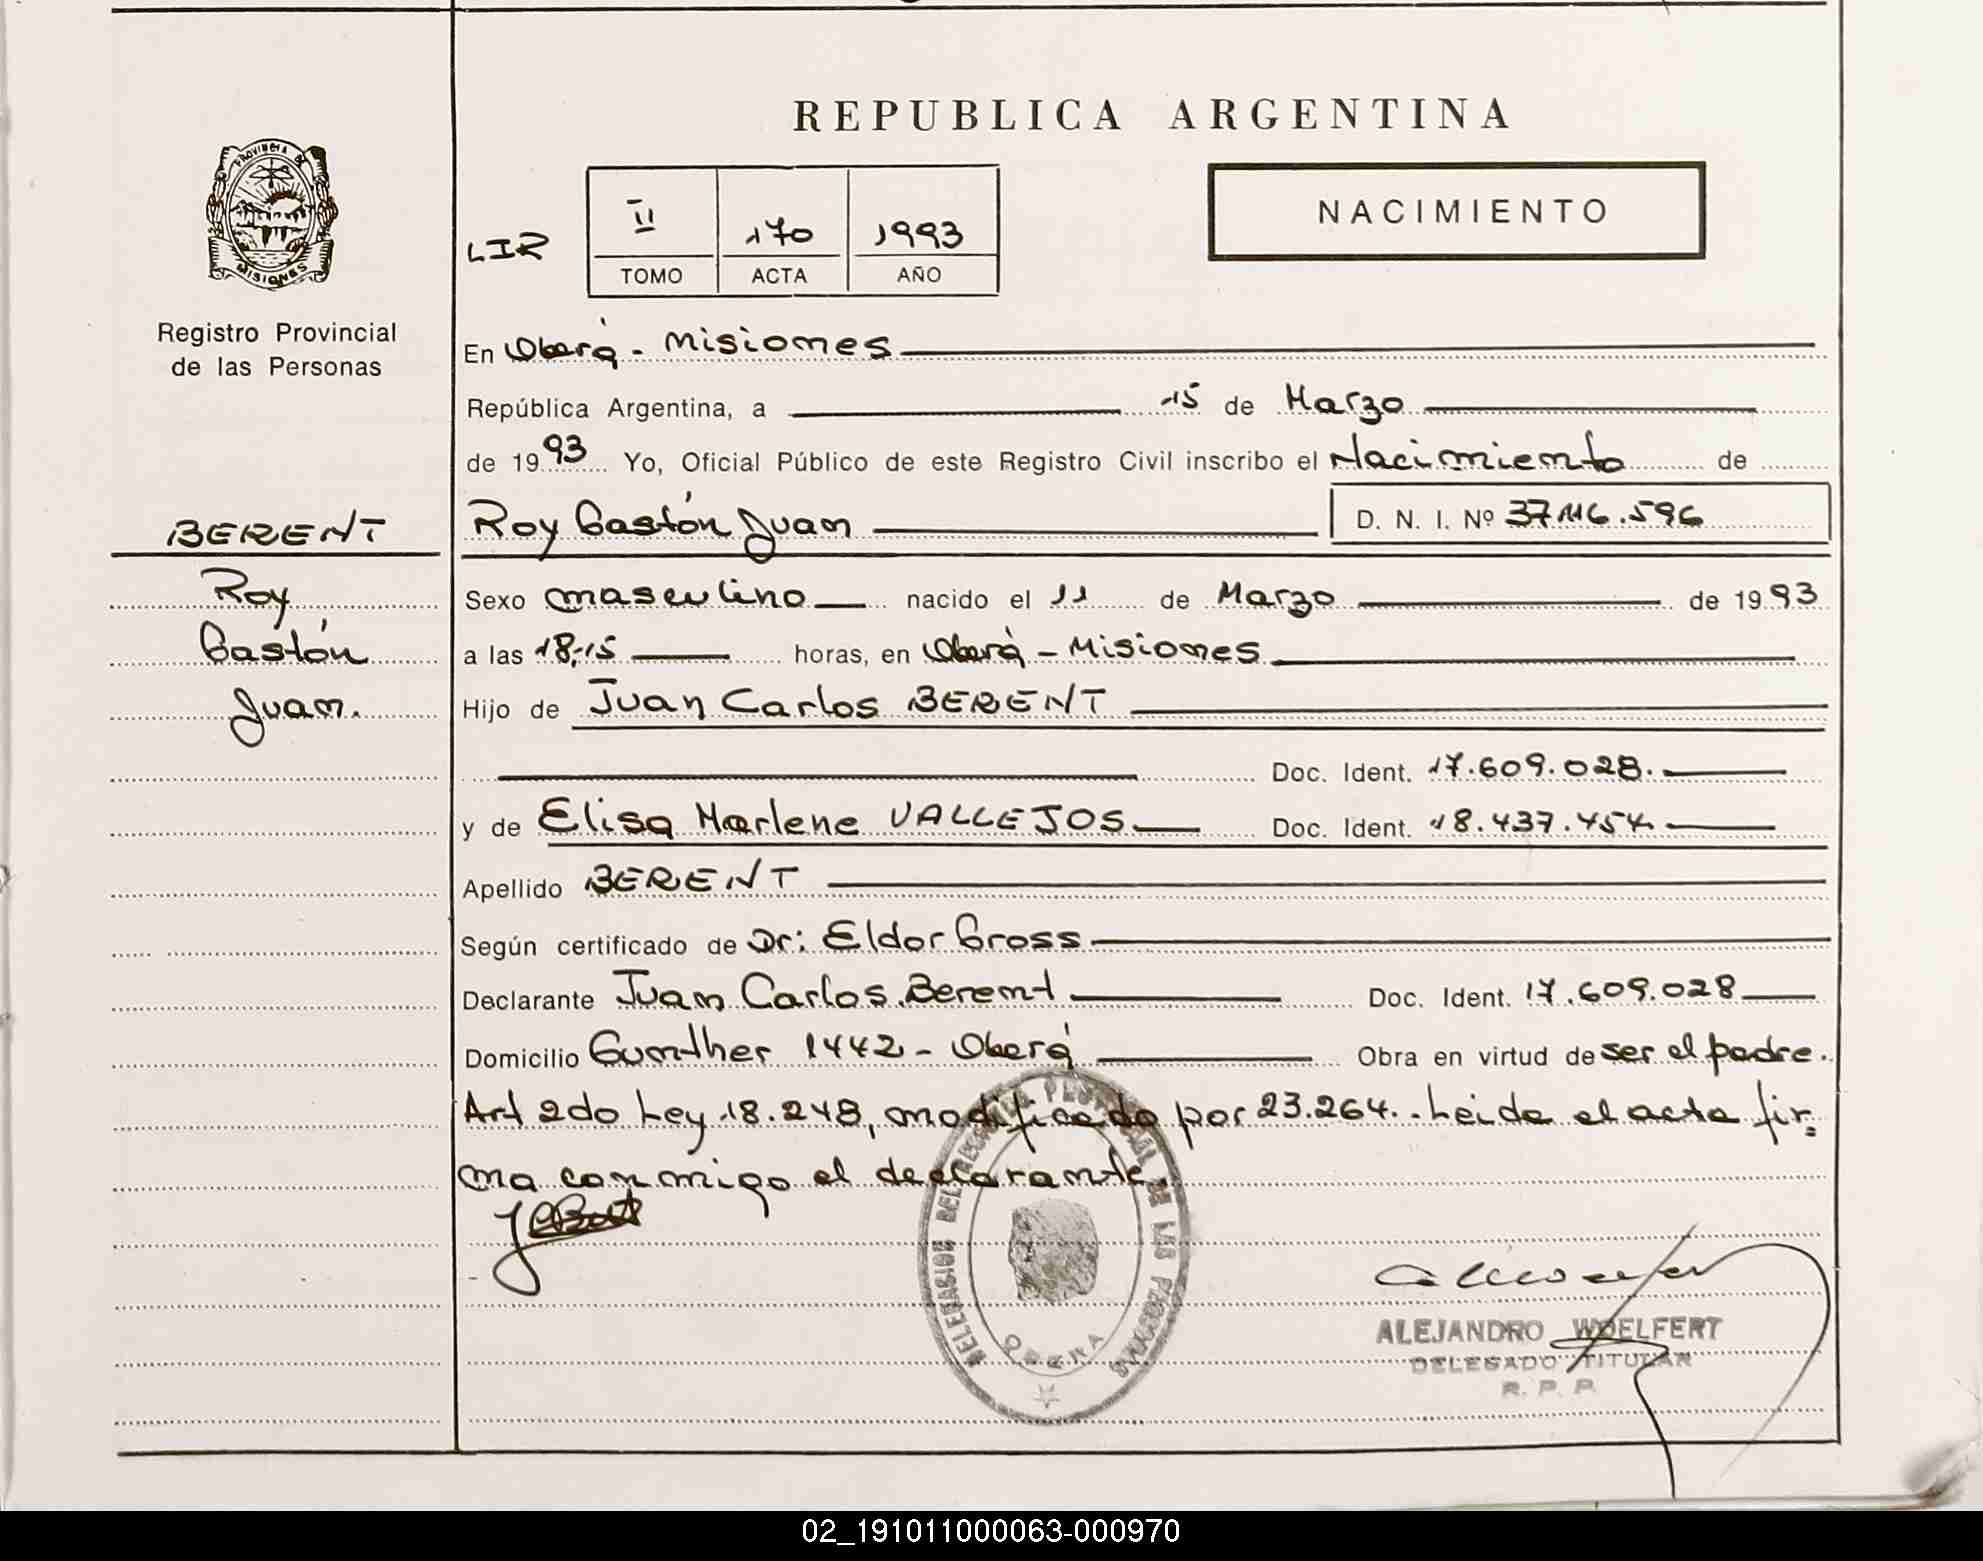 REPUBLICA ARGENTINA
PROVINCIA DE
MISIONES
Registro Provincial
de las Personas
LIR
II 170 1993
TOMO ACTA AÑO
NACIMIENTO
En Oberá - Misiones
República Argentina, a 15 de Marzo
de 1993 Yo, Oficial Público de este Registro Civil inscribo el Nacimiento de
BERENT
Roy Gastón Juan D. N. I. Nº 37.116.596
Roy
Gastón
Juan.
Sexo masculino nacido el 11 de Marzo de 1993
a las 18,15 horas, en Oberá - Misiones
Hijo de Juan Carlos BERENT
Doc. Ident. 17.609.028.
y de Elisa Marlene VALLEJOS Doc. Ident. 18.437.454.
Apellido BERENT
Según certificado de Dr: Eldor Gross
Declarante Juan Carlos Berent Doc. Ident. 17.609.028
Domicilio Gunther 1442 - Oberá Obra en virtud de ser el padre.
Art 2do Ley 18.248, modificado por 23.264. Leida el acta fir=
ma conmigo el declarante.
DELEGACION DEL REGISTRO PROVINCIAL DE LAS PERSONAS
OBERA
ALEJANDRO WOELFERT
DELEGADO TITULAR
R. P. P.
02_191011000063-000970